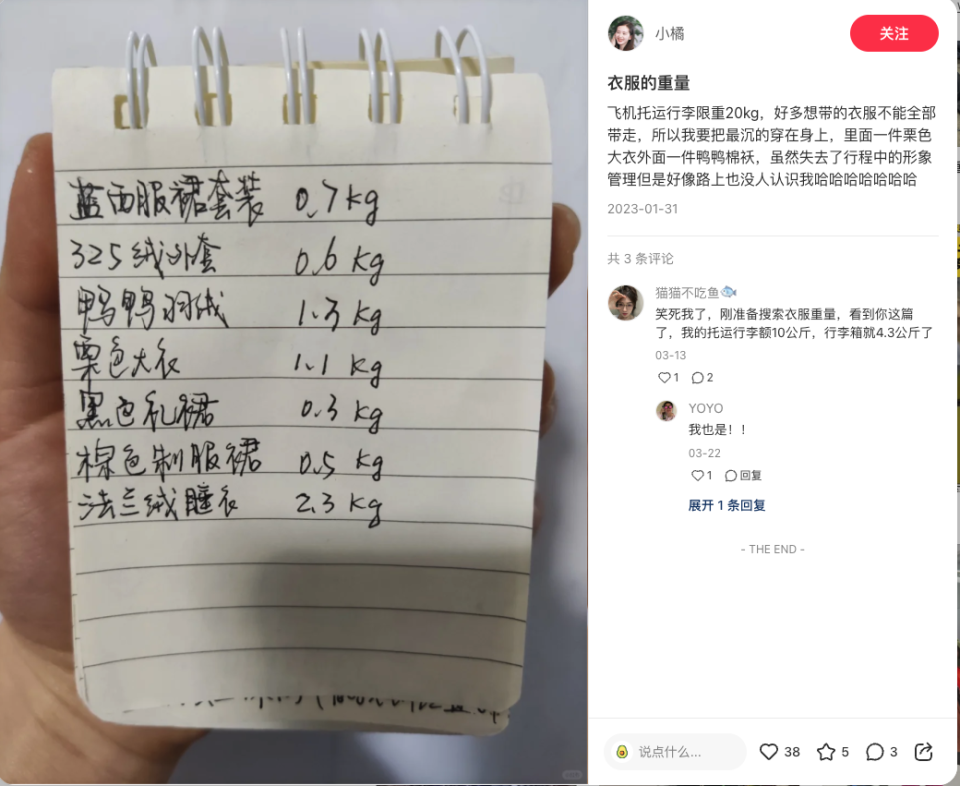 蓝西服裙套装 0.7kg
325绒外套 0.6 kg
鸭鸭羽绒 1.3 kg
栗色大衣 1.1 kg
黑色礼裙 0.3 kg
棕色制服裙 0.5 kg
法兰绒睡衣 2.3 kg
小橘
关注
衣服的重量
飞机托运行李限重20kg，好多想带的衣服不能全部
带走，所以我要把最沉的穿在身上，里面一件栗色
大衣外面一件鸭鸭棉袄，虽然失去了行程中的形象
管理但是好像路上也没人认识我哈哈哈哈哈哈哈
2023-01-31
共 3 条评论
猫猫不吃鱼🐟
笑死我了，刚准备搜索衣服重量，看到你这篇
了，我的托运行李额10公斤，行李箱就4.3公斤了
03-13
1 2
YOYO
我也是！！
03-22
1 回复
展开 1 条回复
- THE END -
说点什么... 38 5 3